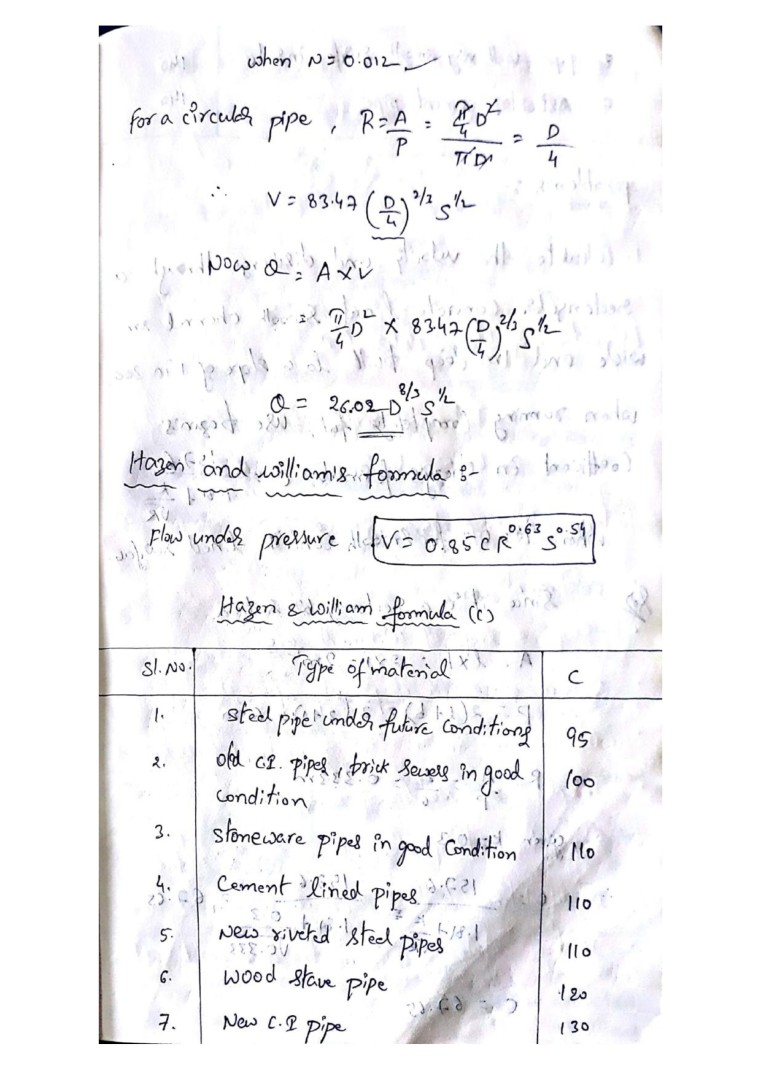 when N = 0.012
For a circular pipe, R = A/P = (π/4 D²)/(πD) = D/4
∴ V = 83.47 (D/4)^2/3 S^1/2
Now Q = A × V
= π/4 D² × 83.47 (D/4)^2/3 S^1/2
Q = 26.02 D^8/3 S^1/2
Hazen and william's formula :-
Flow under pressure V = 0.85 C R^0.63 S^0.54
Hazen & william formula (c)
Sl. No. Type of material C
1. steel pipe under future conditions 95
2. old C.I. pipes, brick sewers in good condition 100
3. stoneware pipes in good condition 110
4. Cement lined pipes 110
5. New riveted steel pipes 110
6. Wood stave pipe 120
7. New C.I pipe 130